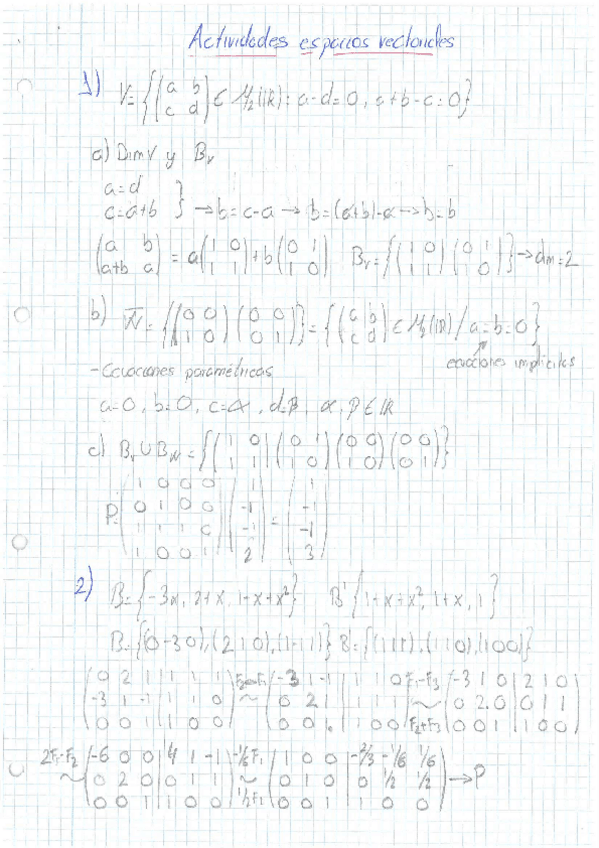 Actividades espacios vectoriales
1) V = {(a b; c d) ∈ M₂(ℝ) : a-d=0, a+b-c=0}
a) Dim V y B_V
a=d
c=a+b } → b=c-a → b=(a+b)-a → b=b
(a b; a+b a) = a(1 0; 1 1) + b(0 1; 1 0) B_V = {(1 0; 1 1)(0 1; 1 0)} → dim=2
b) W = {(0 0; 1 0)(0 0; 0 1)} = {(a b; c d) ∈ M₂(ℝ) / a=b=0}
ecuaciones implícitas
- Ecuaciones paramétricas
a=0, b=0, c=α, d=β, α, β ∈ ℝ
c) B_V ∪ B_W = {(1 0; 1 1)(0 1; 1 0)(0 0; 1 0)(0 0; 0 1)}
P = (1 0 0 0; 0 1 0 0; 1 1 1 0; 1 0 0 1)(1; -1; -1; 2) = (1; -1; -1; 3)
2) B = {-3x, 2+x, 1-x+x²} B' {1+x+x², 1+x, 1}
B = {(0 -3 0), (2 1 0), (1 -1 1)} B' = {(1 1 1), (1 1 0), (1 0 0)}
(0 2 1 | 1 1 1; -3 1 -1 | 1 1 0; 0 0 1 | 1 0 0) ~ (-3 1 -1 | 1 1 0; 0 2 1 | 1 1 1; 0 0 1 | 1 0 0) F₁-F₃ ~ F₂+F₃ (-3 1 0 | 2 1 0; 0 2 0 | 0 1 1; 0 0 1 | 1 0 0)
2F₁-F₂ ~ (-6 0 0 | 4 1 -1; 0 2 0 | 0 1 1; 0 0 1 | 1 0 0) -1/6 F₁ ~ 1/2 F₁ (1 0 0 | -2/3 -1/6 1/6; 0 1 0 | 0 1/2 1/2; 0 0 1 | 1 0 0) → P